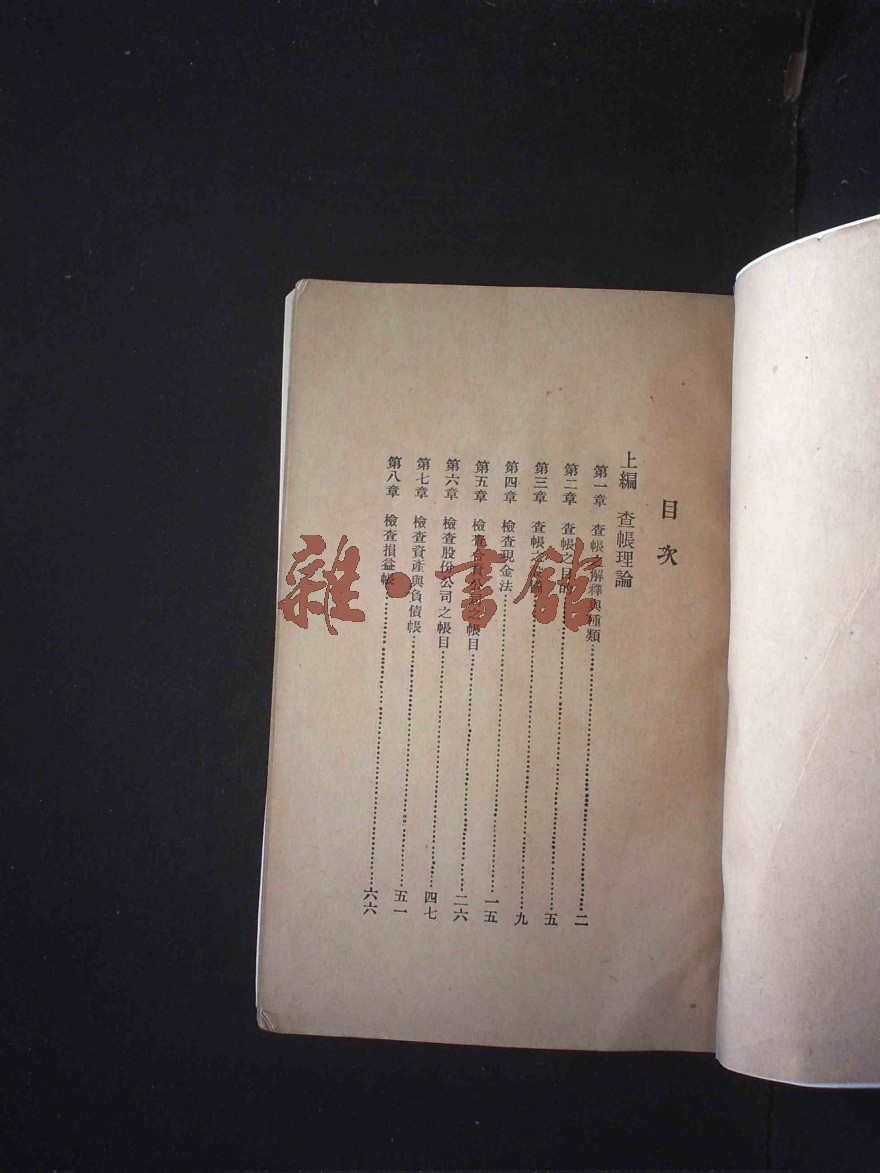 目次
上編 查帳理論
第一章 查帳之解釋與種類……二
第二章 查帳之目的……五
第三章 查帳之……九
第四章 檢查現金法……一五
第五章 檢查合資公司之帳目……二六
第六章 檢查股份公司之帳目……四七
第七章 檢查資產與負債帳……五一
第八章 檢查損益帳……六六
雜·書館